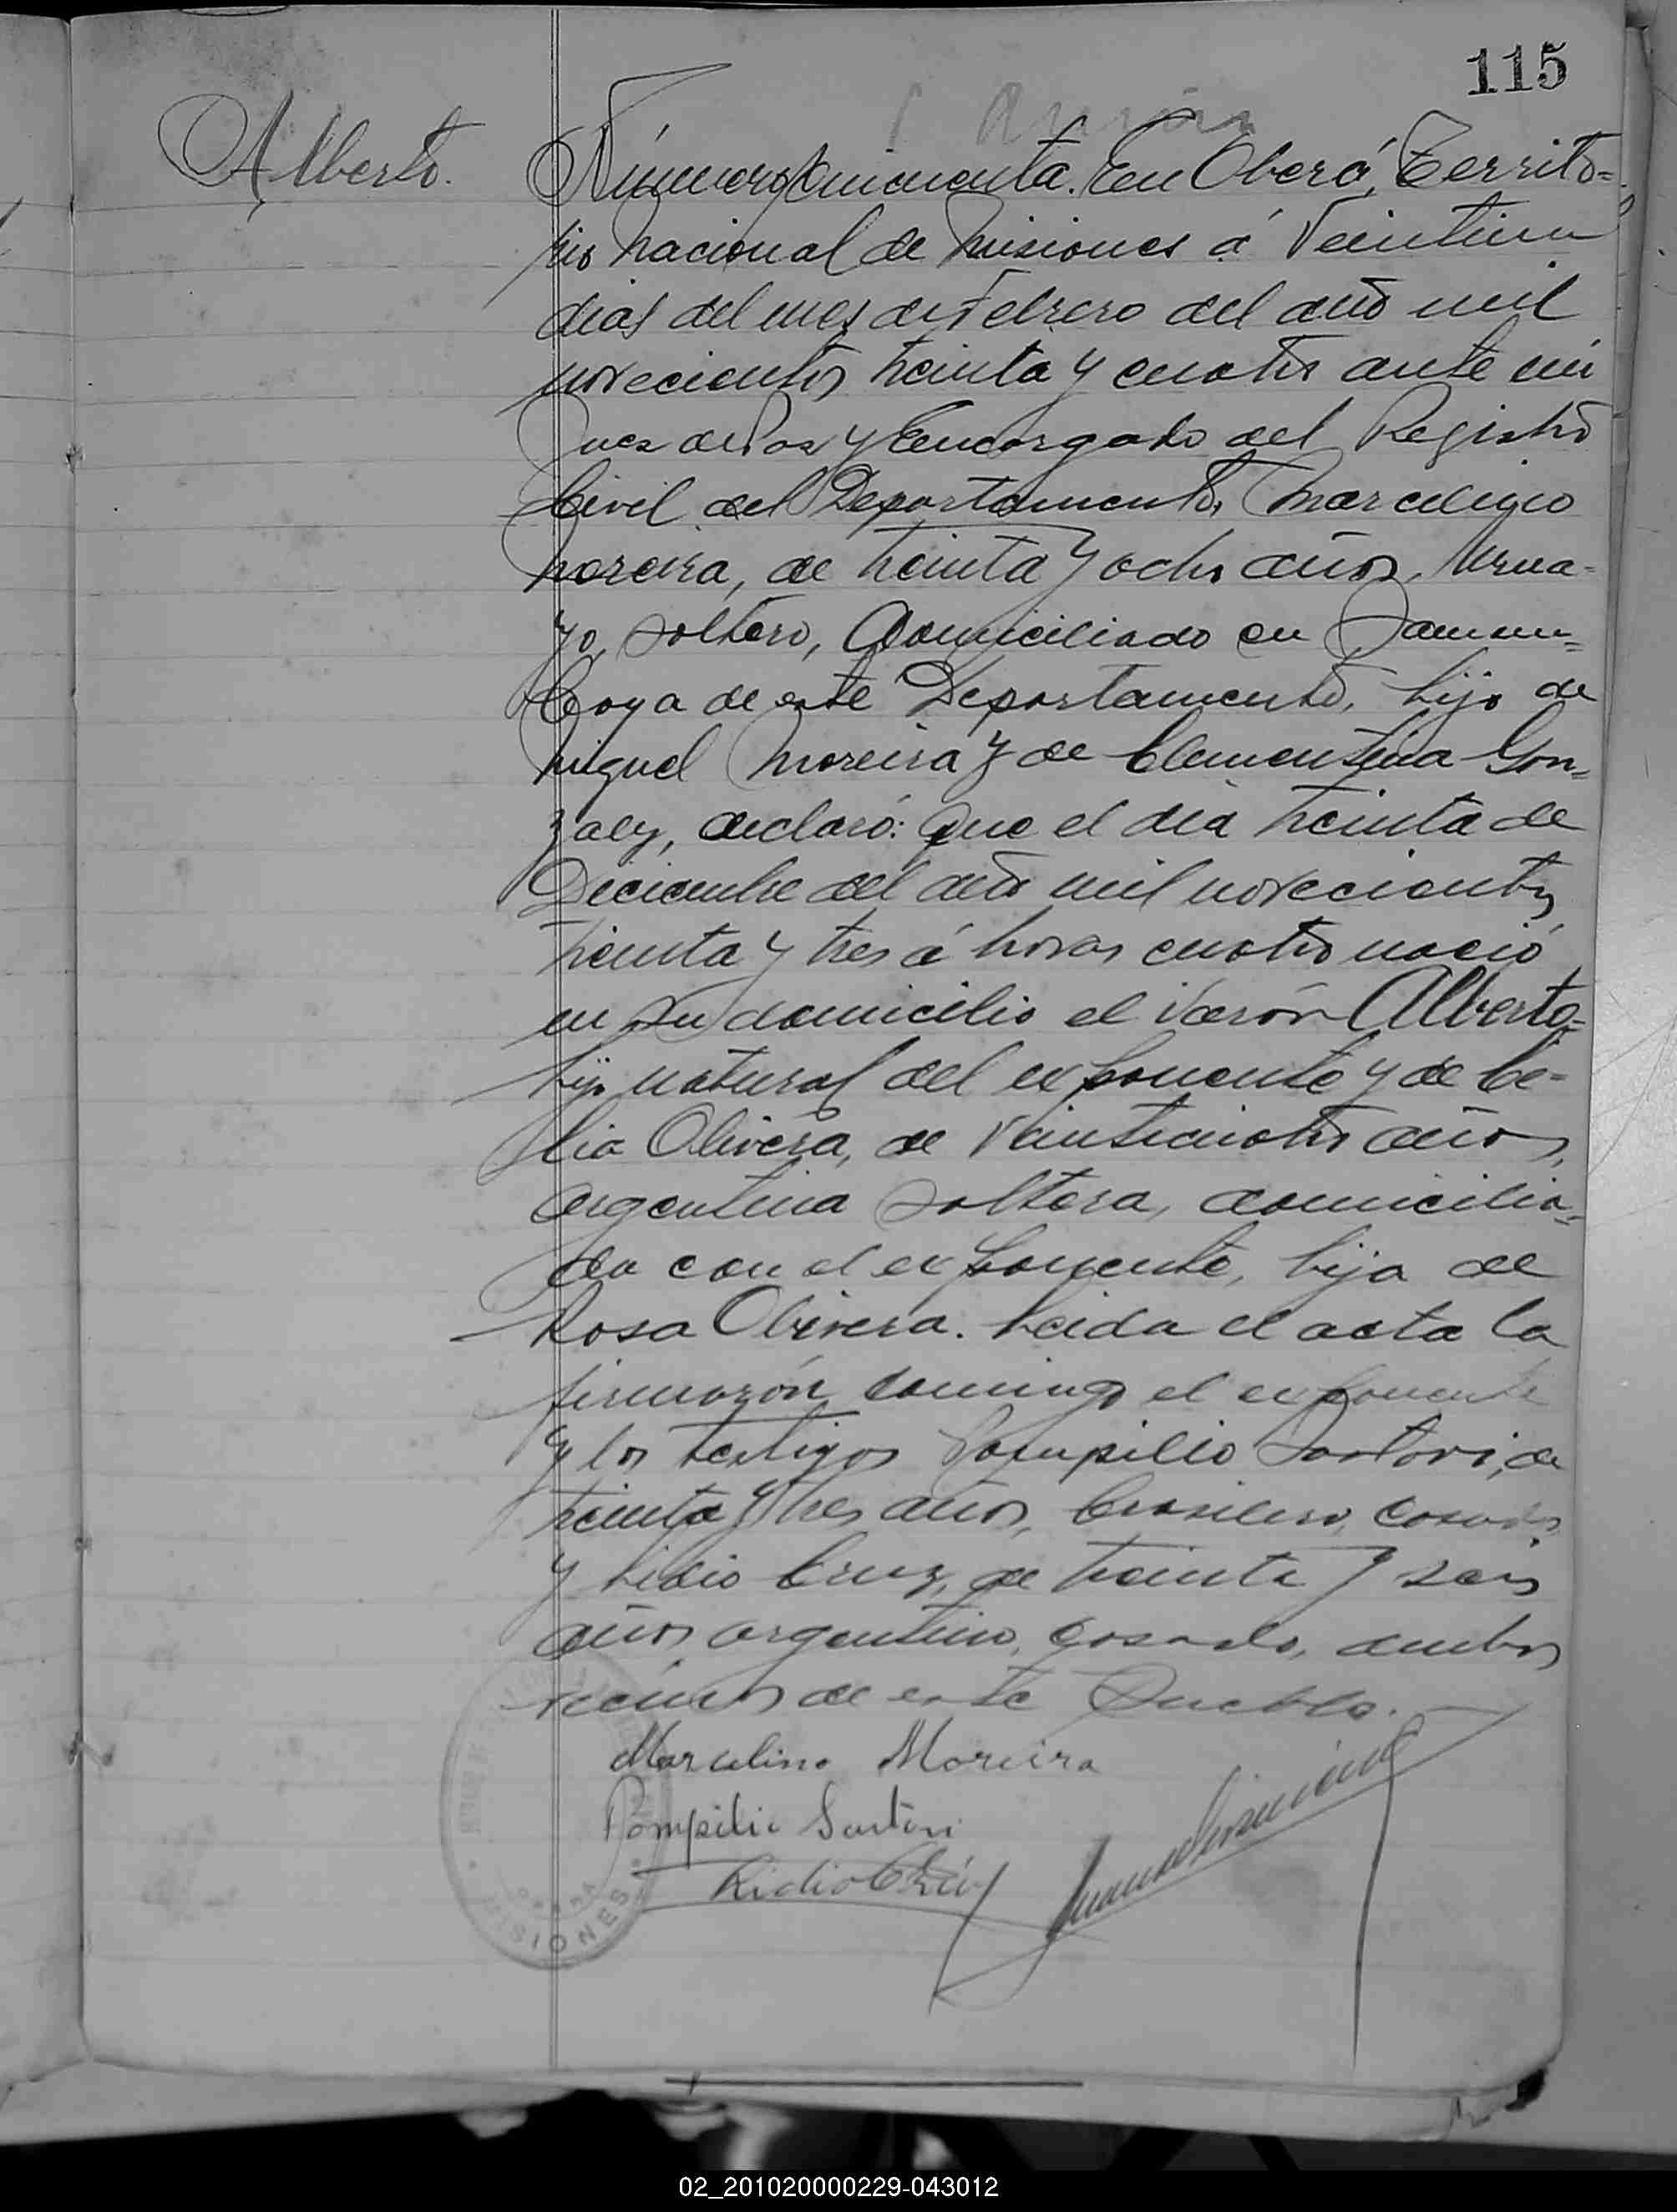 115
Alberto.
Número Cincuenta. En Oberá, Territo=
rio Nacional de Misiones á Veintiun
dias del mes de Febrero del año mil
novecientos treinta y cuatro ante mi
Juez de Paz y Encargado del Registro
Civil del Departamento, Marcelino
Moreira, de treinta y ocho años,
yo, soltero, domiciliado en
de este Departamento, hijo de
Miguel Moreira y de Clementina Gon=
zalez, declaró: Que el dia treinta de
Diciembre del año mil novecientos
treinta y tres á horas cuatro nació
en su domicilio el varón Alberto=
hijo natural del exponente y de Ce=
lia Olivera, de veinticuatro años,
argentina soltera, domicilia=
da con el exponente, hija de
Rosa Olivera. Leida el acta la
firmarón conmigo el exponente
y los testigos Pompilio Sartori, de
treinta y tres años, brasilero, casado
y Lidio Cruz, de treinta y seis
años argentino, casado, ambos
vecinos de este Pueblo.
Marcelino Moreira
Pompilio Sartori
Lidio Crúz
MISIONES
02_201020000229-043012